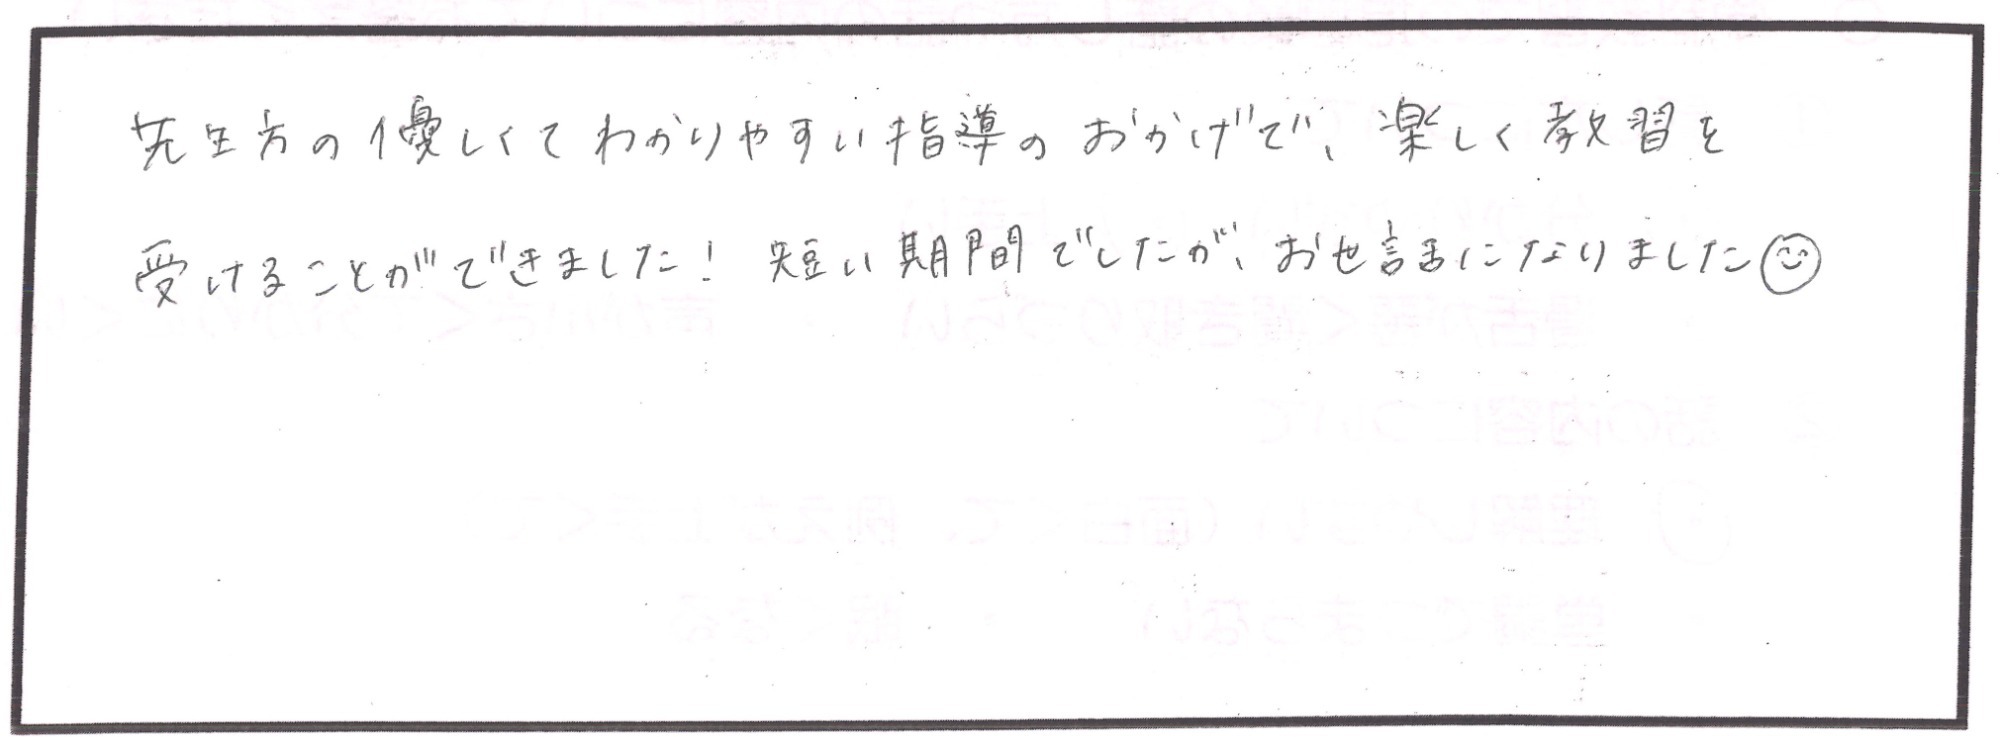 先生方の優しくてわかりやすい指導のおかげで、楽しく教習を
受けることができました! 短い期間でしたが、お世話になりました☺